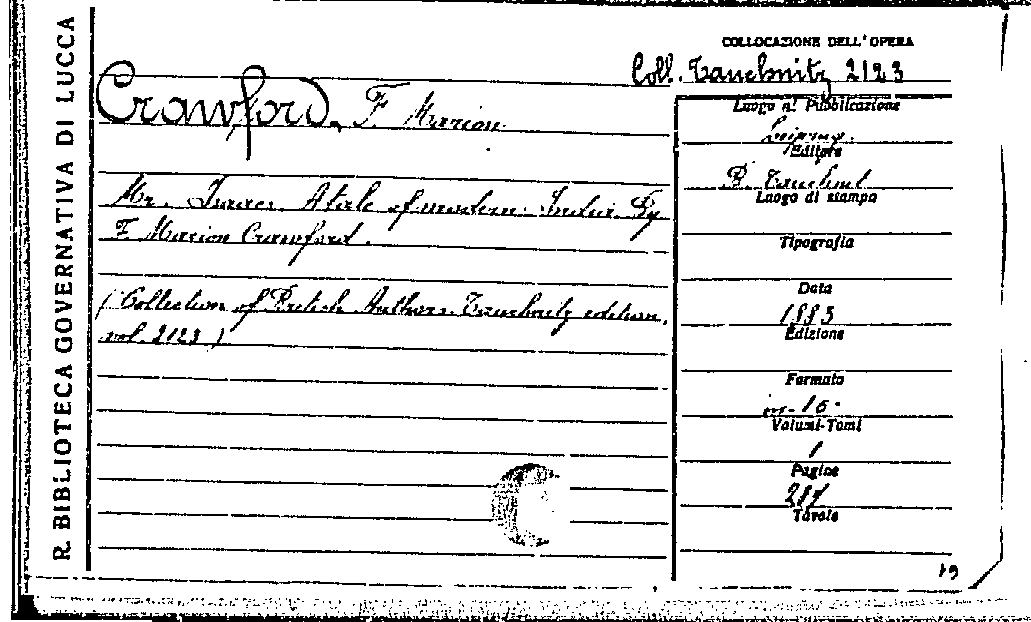 R. BIBLIOTECA GOVERNATIVA DI LUCCA
COLLOCAZIONE DELL'OPERA
Coll. Tauchnitz 2123
Crawford, F. Marion
Mr. Isaacs. A tale of modern India. By
F. Marion Crawford.
(Collection of British Authors. Tauchnitz edition.
vol. 2123)
Luogo di Pubblicazione
Leipzig.
Editore
B. Tauchnitz
Luogo di stampa
Tipografia
Data
1883
Edizione
Formato
in-16.
Volumi-Tomi
1
Pagine
Tavole